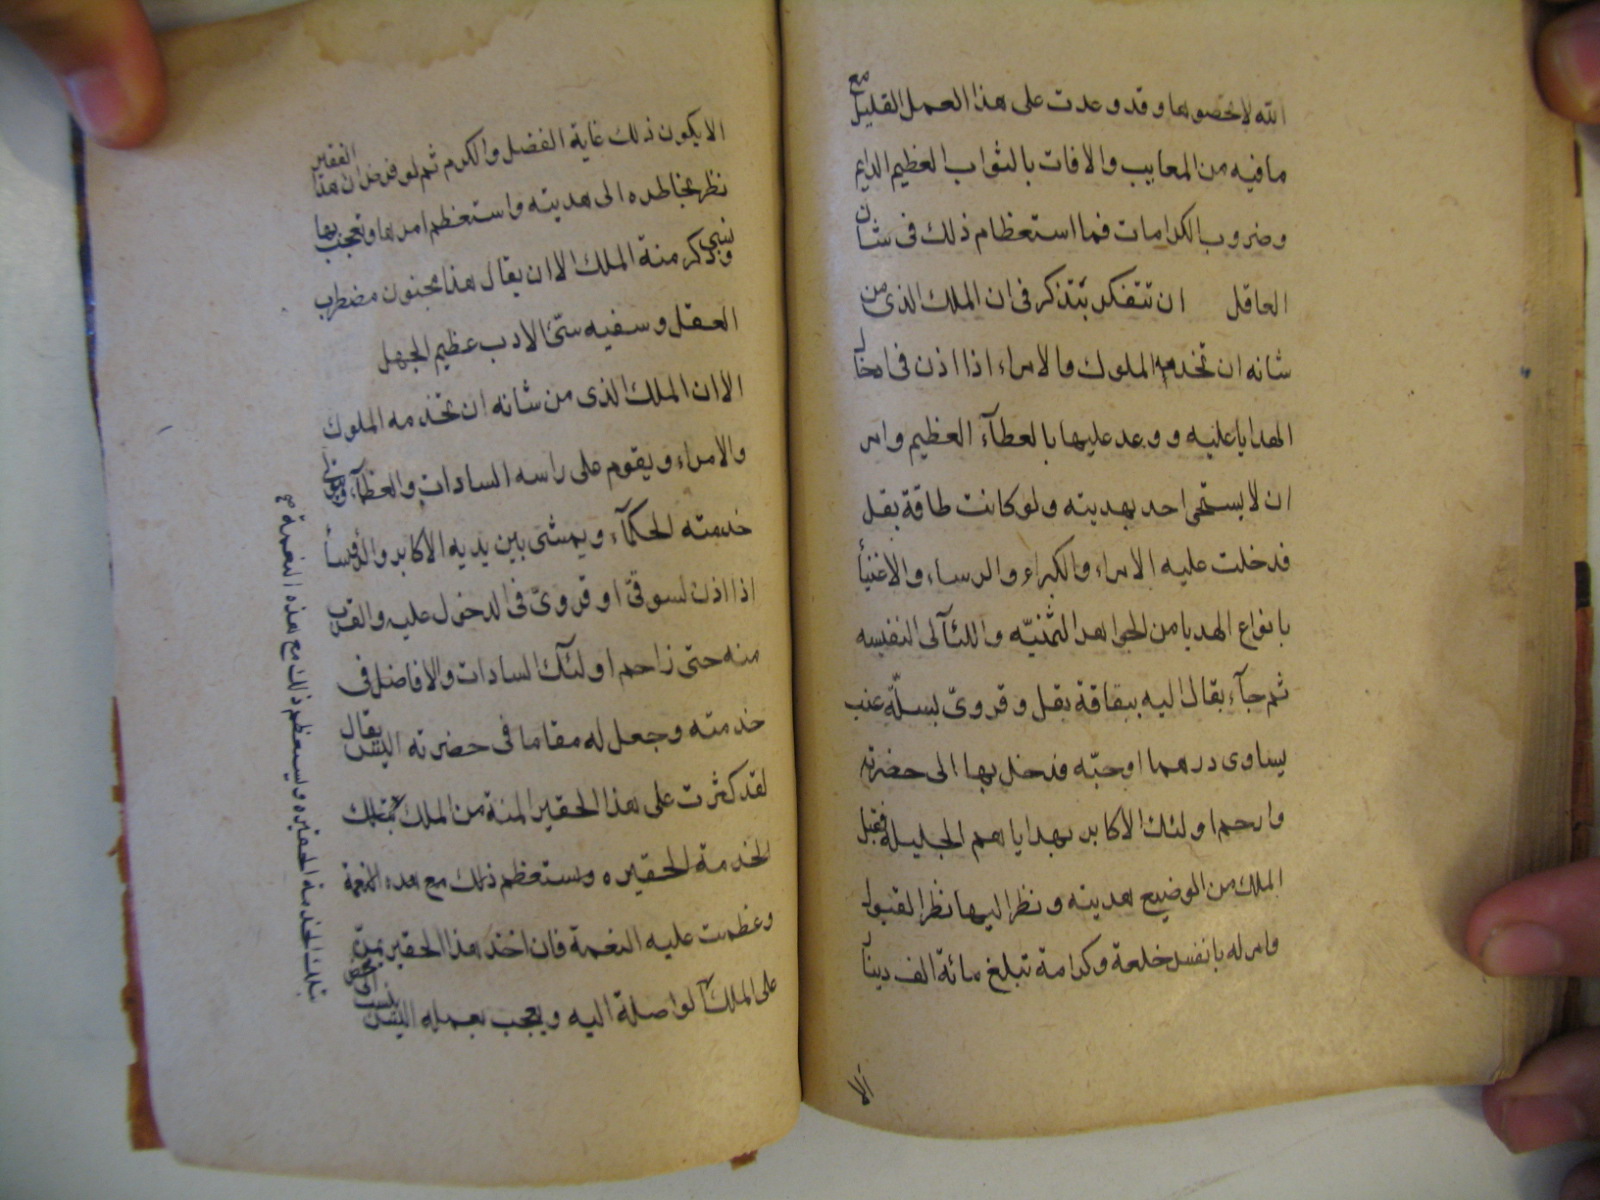 الله لا تحصوها وقد وعدت على هذا العمل القليل مع
ما فيه من المعايب والافات بالثواب العظيم الدايم
وضروب الكرامات فما استعظام ذلك فى شان
العاقل ان تتفكر تتذكر فى ان الملك الذى من
شانه ان تخدمه الملوك والامراء اذا اذن فى ادخال
الهدايا عليه ووعد عليها بالعطآء العظيم وامر
ان لا يستحى احد بهديته ولو كانت طاقة بقل
فدخلت عليه الامراء والكبراء والرساء والاغنيأ
بانواع الهديا من الجواهد الثمنيّه واللئآلى النفيسه
ثم جآء بقال اليه بباقة بقل وقروىّ بسلّة عنب
يساوى درهما او حبّه فدخل بها الى حضرته
وازحم اولئك الاكابر بهدايا هم الجليلة فقبل
الملك من الوضيع هديته ونظر اليها نظر القبول
وامر له بانفس خلعة وكرامة تبلغ مائة الف دينأ
الا
الا يكون ذلك غاية الفضل والكرم ثم لو فرض ان هذا الفقير
نظر بخاطره الى هديته واستعظم امرها وتعجب بها
ونسي ذكر منة الملك الا ان يقال هذا مجنون مضطرب
العقل وسفيه سىّء الادب عظيم الجهل
الا ان الملك الذى من شانه ان تخدمه الملوك
والامراء ويقوم على راسه السادات والعظمآء
خدمته الحكمآء ويمشى بين يديه الاكابر والرؤسأ
اذا اذن لسوقىّ او قروىّ فى الدخول عليه والقرب
منه حتى زاحم اولئك السادات والافاضل فى
خدمته وجعل له مقاما فى حضرته اليس يقال
لقد كثرت على هذا الحقير المنة من الملك
وعظمت عليه النعمة فان اخذ هذا الحقير يمنّ
على الملك
الخدمة الحقيره ويستعظم ذلك مع هذه النعمة
الواصلة اليه ويعجب بعمله اليس
بتلك الخدمة الحقيره ويستعظم ذلك مع هذه النعمة صح